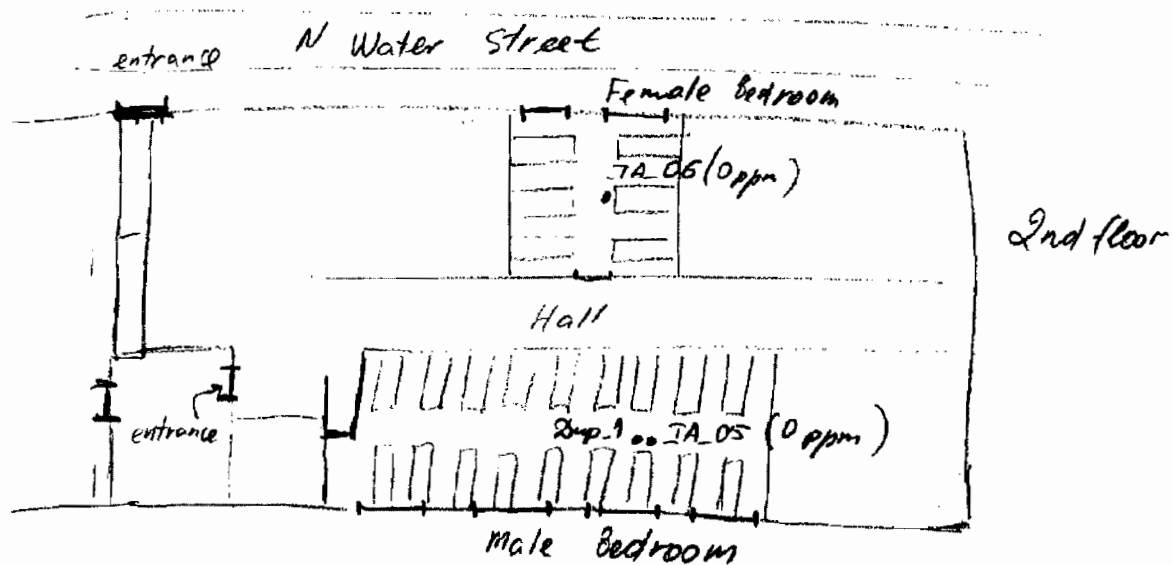 N Water Street
entrance
Female Bedroom
IA_06 (0ppm)
2nd floor
Hall
entrance
Dup_1 IA_05 (0ppm)
Male Bedroom